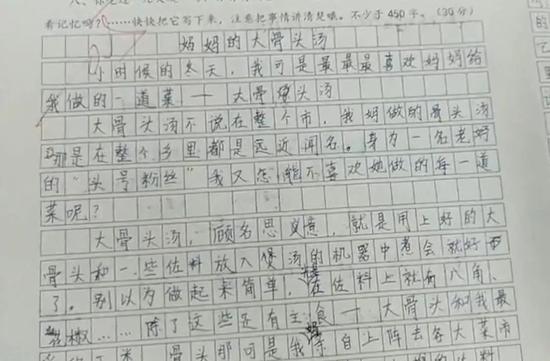 看记忆吗?……快快把它写下来,注意把事情讲清楚哦。不少于450字。(30分)
妈妈的大骨头汤
小时候的冬天,我可是最最最喜欢妈妈给
我做的一道菜——大骨头汤
大骨头汤不说在整个市,我妈做的骨头汤
那是在整个乡里都是远近闻名。身为一名老妈
的"头号粉丝"我又怎能不喜欢她做的每一道
菜呢?
大骨头汤,顾名思义,就是用上好的大
骨头和一些佐料放入煲汤的机器中煮会就好
了。别以为做起来简单,佐料上就有八角、
……除了这些还有主食——大骨头和我最
骨头那可是我亲自上阵去各大菜市